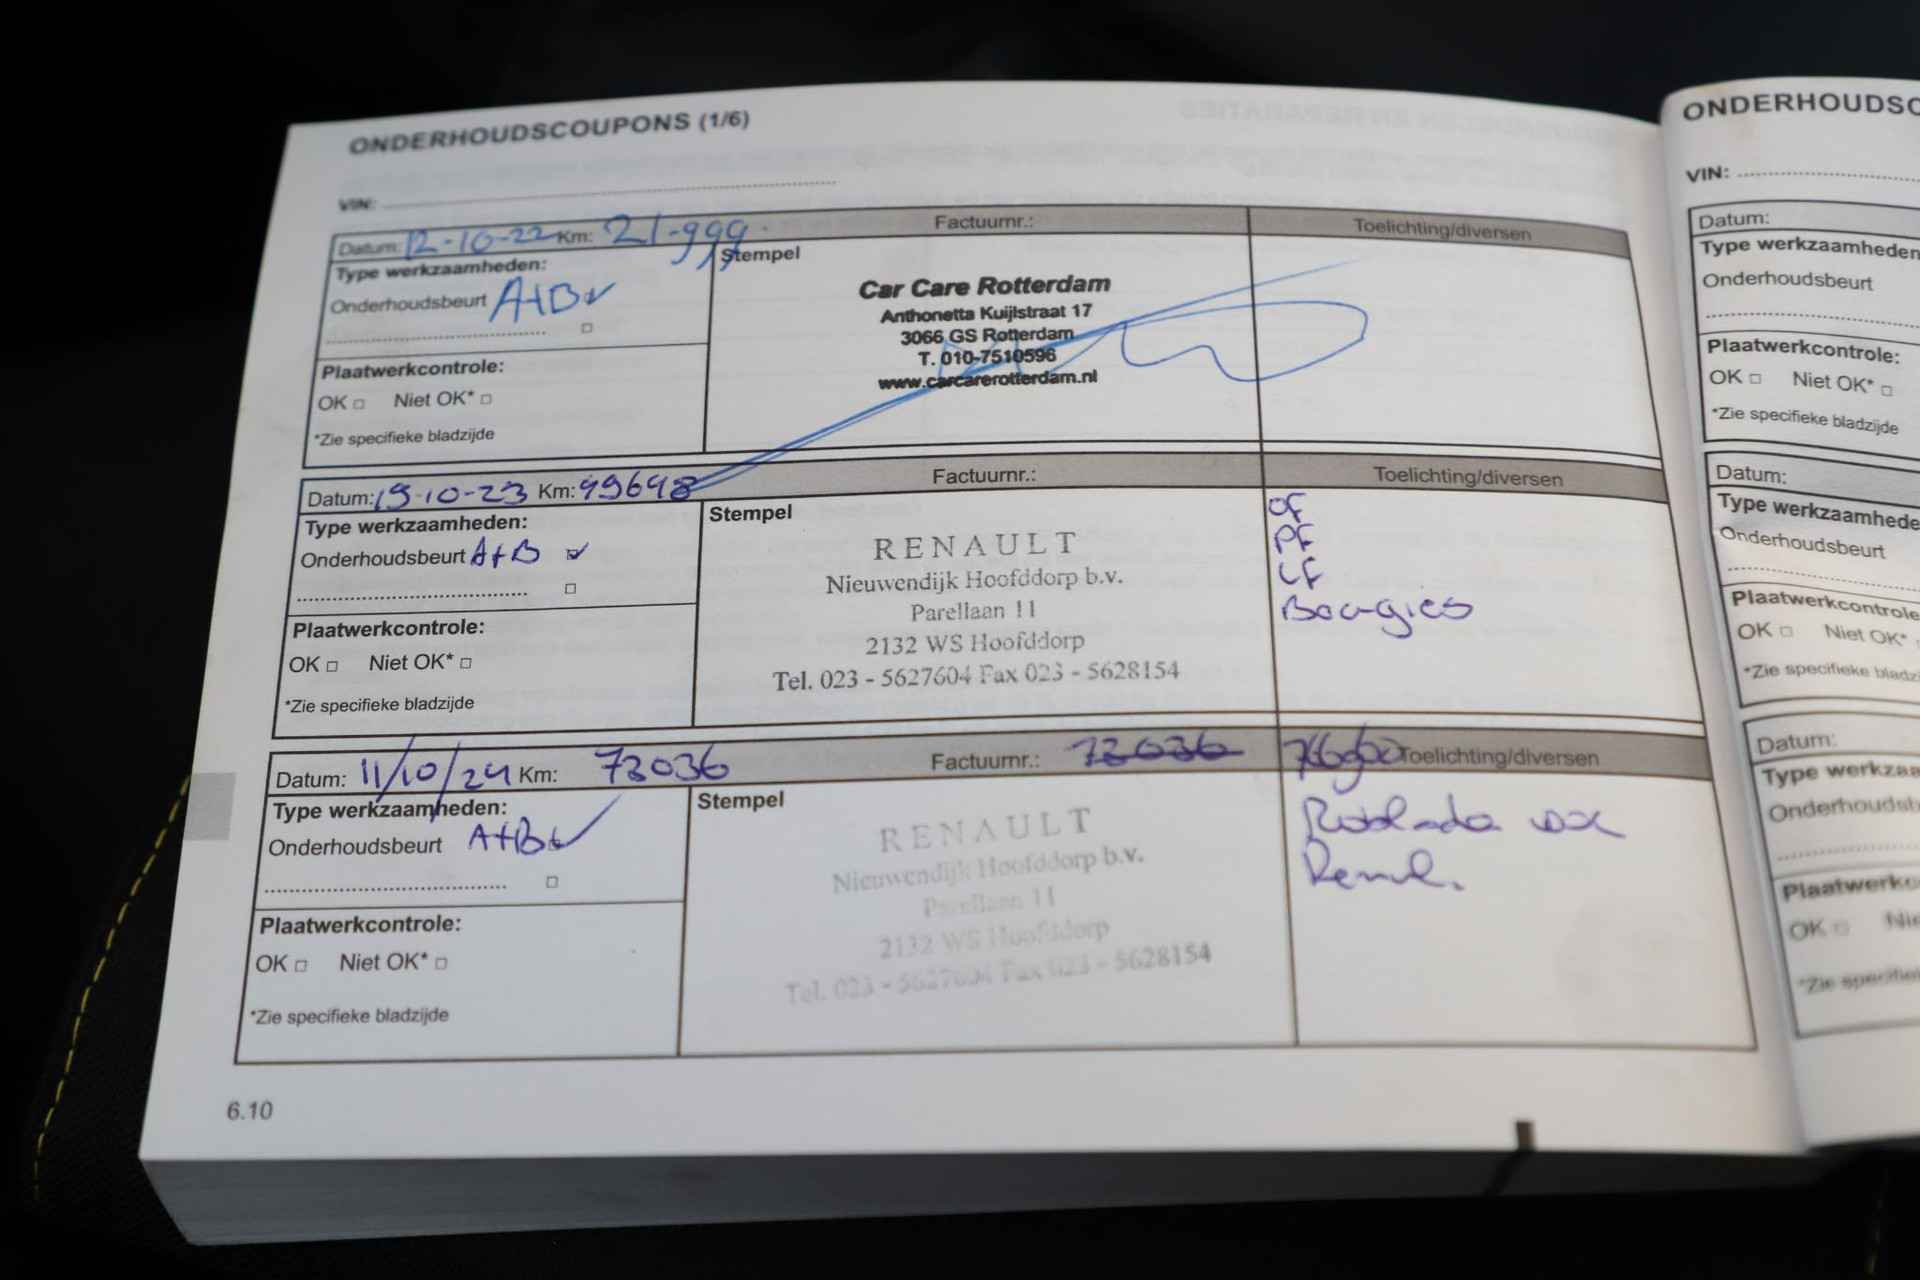 ONDERHOUDSCOUPONS (1/6)
VIN:
Datum: 12-10-22 Km: 21-999 Factuurnr.: Toelichting/diversen
Type werkzaamheden:
Onderhoudsbeurt A+B
Plaatwerkcontrole:
OK □ Niet OK* □
*Zie specifieke bladzijde
Stempel
Car Care Rotterdam
Anthonetta Kuijlstraat 17
3066 GS Rotterdam
T. 010-7510596
www.carcarerotterdam.nl
Datum: 19-10-23 Km: 49648 Factuurnr.: Toelichting/diversen
Type werkzaamheden:
Onderhoudsbeurt A+B
Plaatwerkcontrole:
OK □ Niet OK* □
*Zie specifieke bladzijde
Stempel
RENAULT
Nieuwendijk Hoofddorp b.v.
Parellaan 11
2132 WS Hoofddorp
Tel. 023 - 5627604 Fax 023 - 5628154
OF
PF
LF
Bougies
Datum: 11/10/24 Km: 73036 Factuurnr.: 73036 Toelichting/diversen
Type werkzaamheden:
Onderhoudsbeurt A+B
Plaatwerkcontrole:
OK □ Niet OK* □
*Zie specifieke bladzijde
Stempel
RENAULT
Nieuwendijk Hoofddorp b.v.
Parellaan 11
2132 WS Hoofddorp
Tel. 023 - 5627604 Fax 023 - 5628154
6.10
ONDERHOUDSC
VIN:
Datum:
Type werkzaamheden
Onderhoudsbeurt
Plaatwerkcontrole:
OK □ Niet OK* □
*Zie specifieke bladzijde
Datum:
Type werkzaamhede
Onderhoudsbeurt
Plaatwerkcontrole
OK □ Niet OK*
*Zie specifieke bladzi
Datum:
Type werkzaa
Onderhoudsb
Plaatwerkc
OK □ Nie
*Zie specifie